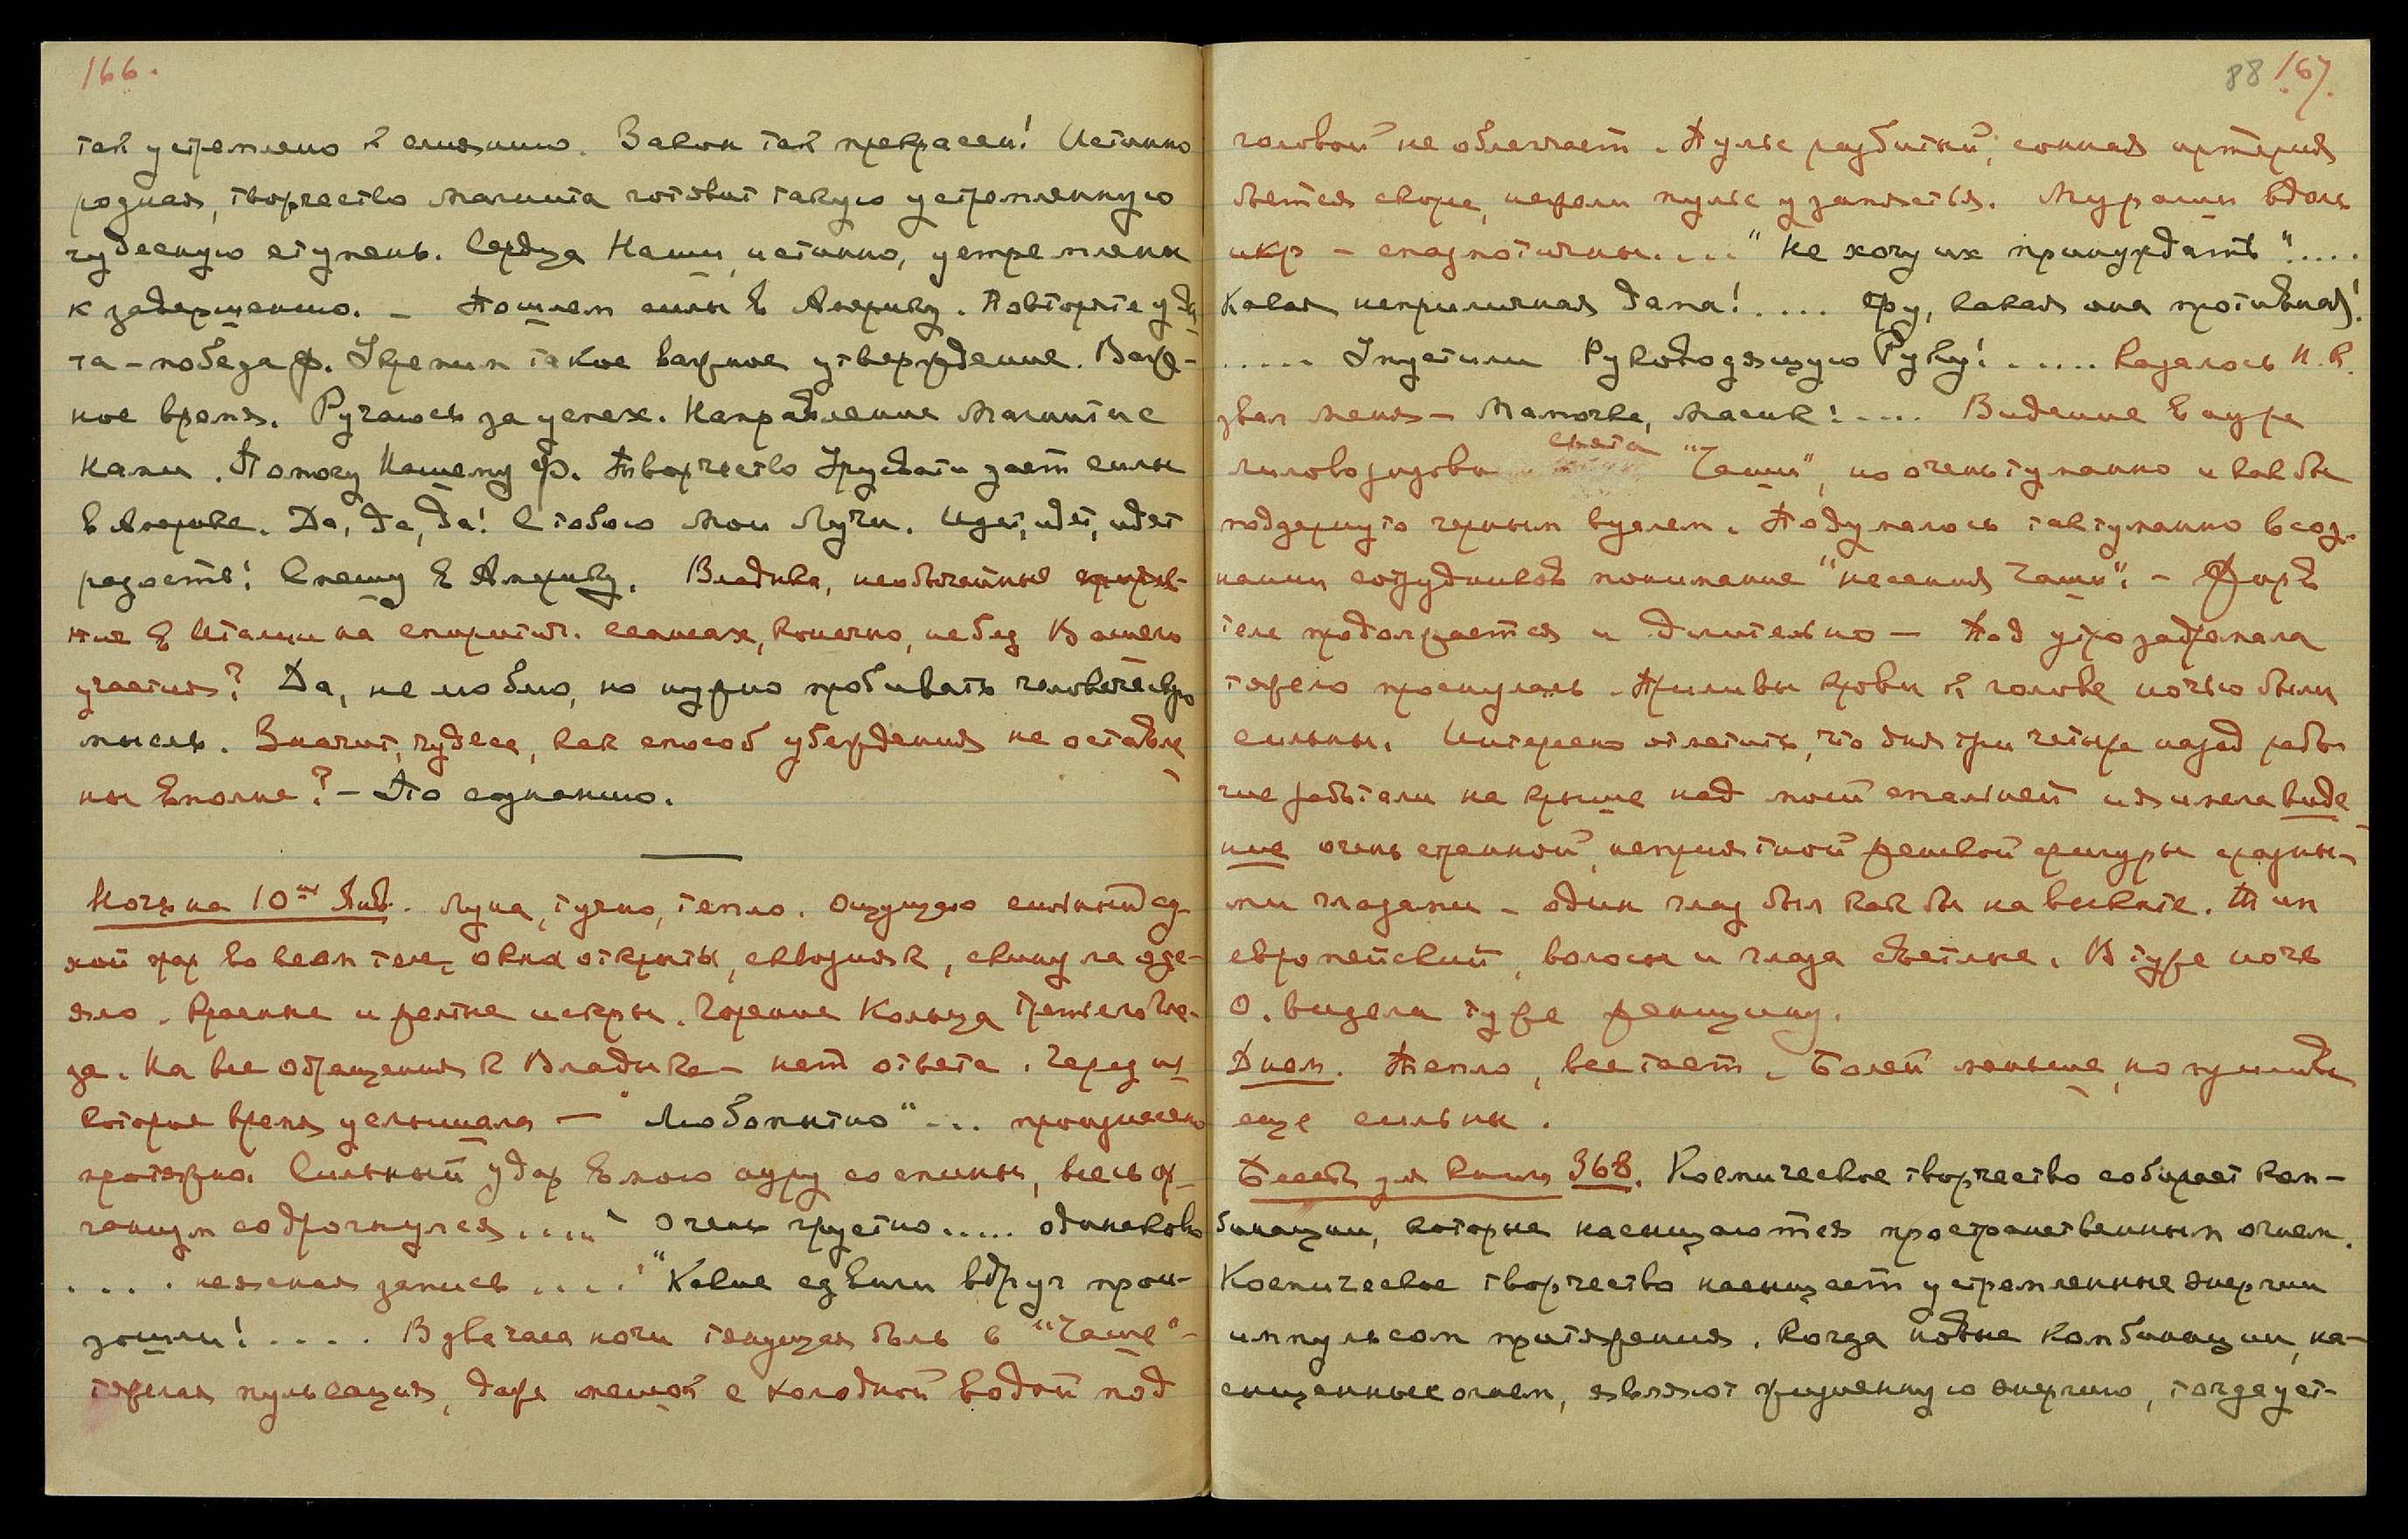 166.
так устремлено к слиянию. Закон так прекрасен! Истинно
родная, творчество магнита готовит такую устремленную
чудесную ступень. Сердца Наши, истинно, устремлены
к завершению. – Пошлем силы в Америку. Повторяте уда
та – победа Ф. Укрепим такое важное утверждение. Важ-
ное время. Ручаюсь за успех. Направление магнит с
нами. Помогу Нашему Ф. Творчество Урусвати дает силы
в Америке. Да, да, да! С тобою Мои Лучи. Идет, идет, идет
радость! Спешу в Америку. Владыка, необычайные
ния в Италии на спиритич. сеансах, конечно, не без Вашего
участия? Да, не люблю, но нужно пробивать человеческую
мысль. Значит, чудеса, как способ убеждения не оставле
ны вполне? – Это сознанию.
Ночь на 10ое Янв. Луна, тучно, тепло. Ощущаю сильный су-
хой жар во всем теле, окна открыты, сквозняк, скинула оде-
яло. Красные и желтые искры. Горение Кольца третьего Гла-
за. На все обращения к Владыке – нет ответа. Через не-
которое время услышала – "Любопытно"... произнесено
протяжно. Сильный удар в мою ауру со спины, весь ор-
ганизм содрогнулся.... Очень грустно..... одинаково
.... неясная запись .... "Какие сдвиги вдруг прои-
зошли! .... В два часа ночи тянущая боль в "Чаше" –
тяжелая пульсация, даже мешок с холодной водой под
88 167.
головой не облегчает. Пульс разбитый, сонная артерия
бьется скорее, нежели пульс у запястья. Мурашки вдоль
икр – спазмотичны.... "Не хочу их принуждать"....
Какая неприличная дама! .... Фу, какая она противная!
..... Упустили Руководящую Руку! ..... Казалось Н.К.
звал меня – Мамочка, Масик! .... Видение в ауре
лиловорозового света "Чаши", но очень туманно и как бы
подернуто черным вуалем. Подумалось так туманно в соз-
нании сотрудников понимание "несения чаши". – Жар в
теле продолжается и длительно – Под утро задремала
тяжело проснулась. Приливы крови к голове ночью были
сильны. Интересно отметить, что дня три четыре назад рабо
чие работали на крыше над моей спальней и я имела виде
ние очень странной, неприятной женской фигуры с разны-
ми глазами – один глаз был как бы на выкате. Тип
европейский, волосы и глаза светлые. В ту же ночь
О. видела ту же женщину.
Днем. Тепло, все тает. Болей меньше, но приливы
еще сильны.
Беседа для книги 368. Космическое творчество собирает ком-
бинации, которые насыщаются пространственным огнем.
Космическое творчество насыщает устремленные энергии
импульсом притяжения. Когда новые комбинации, на-
сыщенные огнем, являют жизненную энергию, тогда уст-